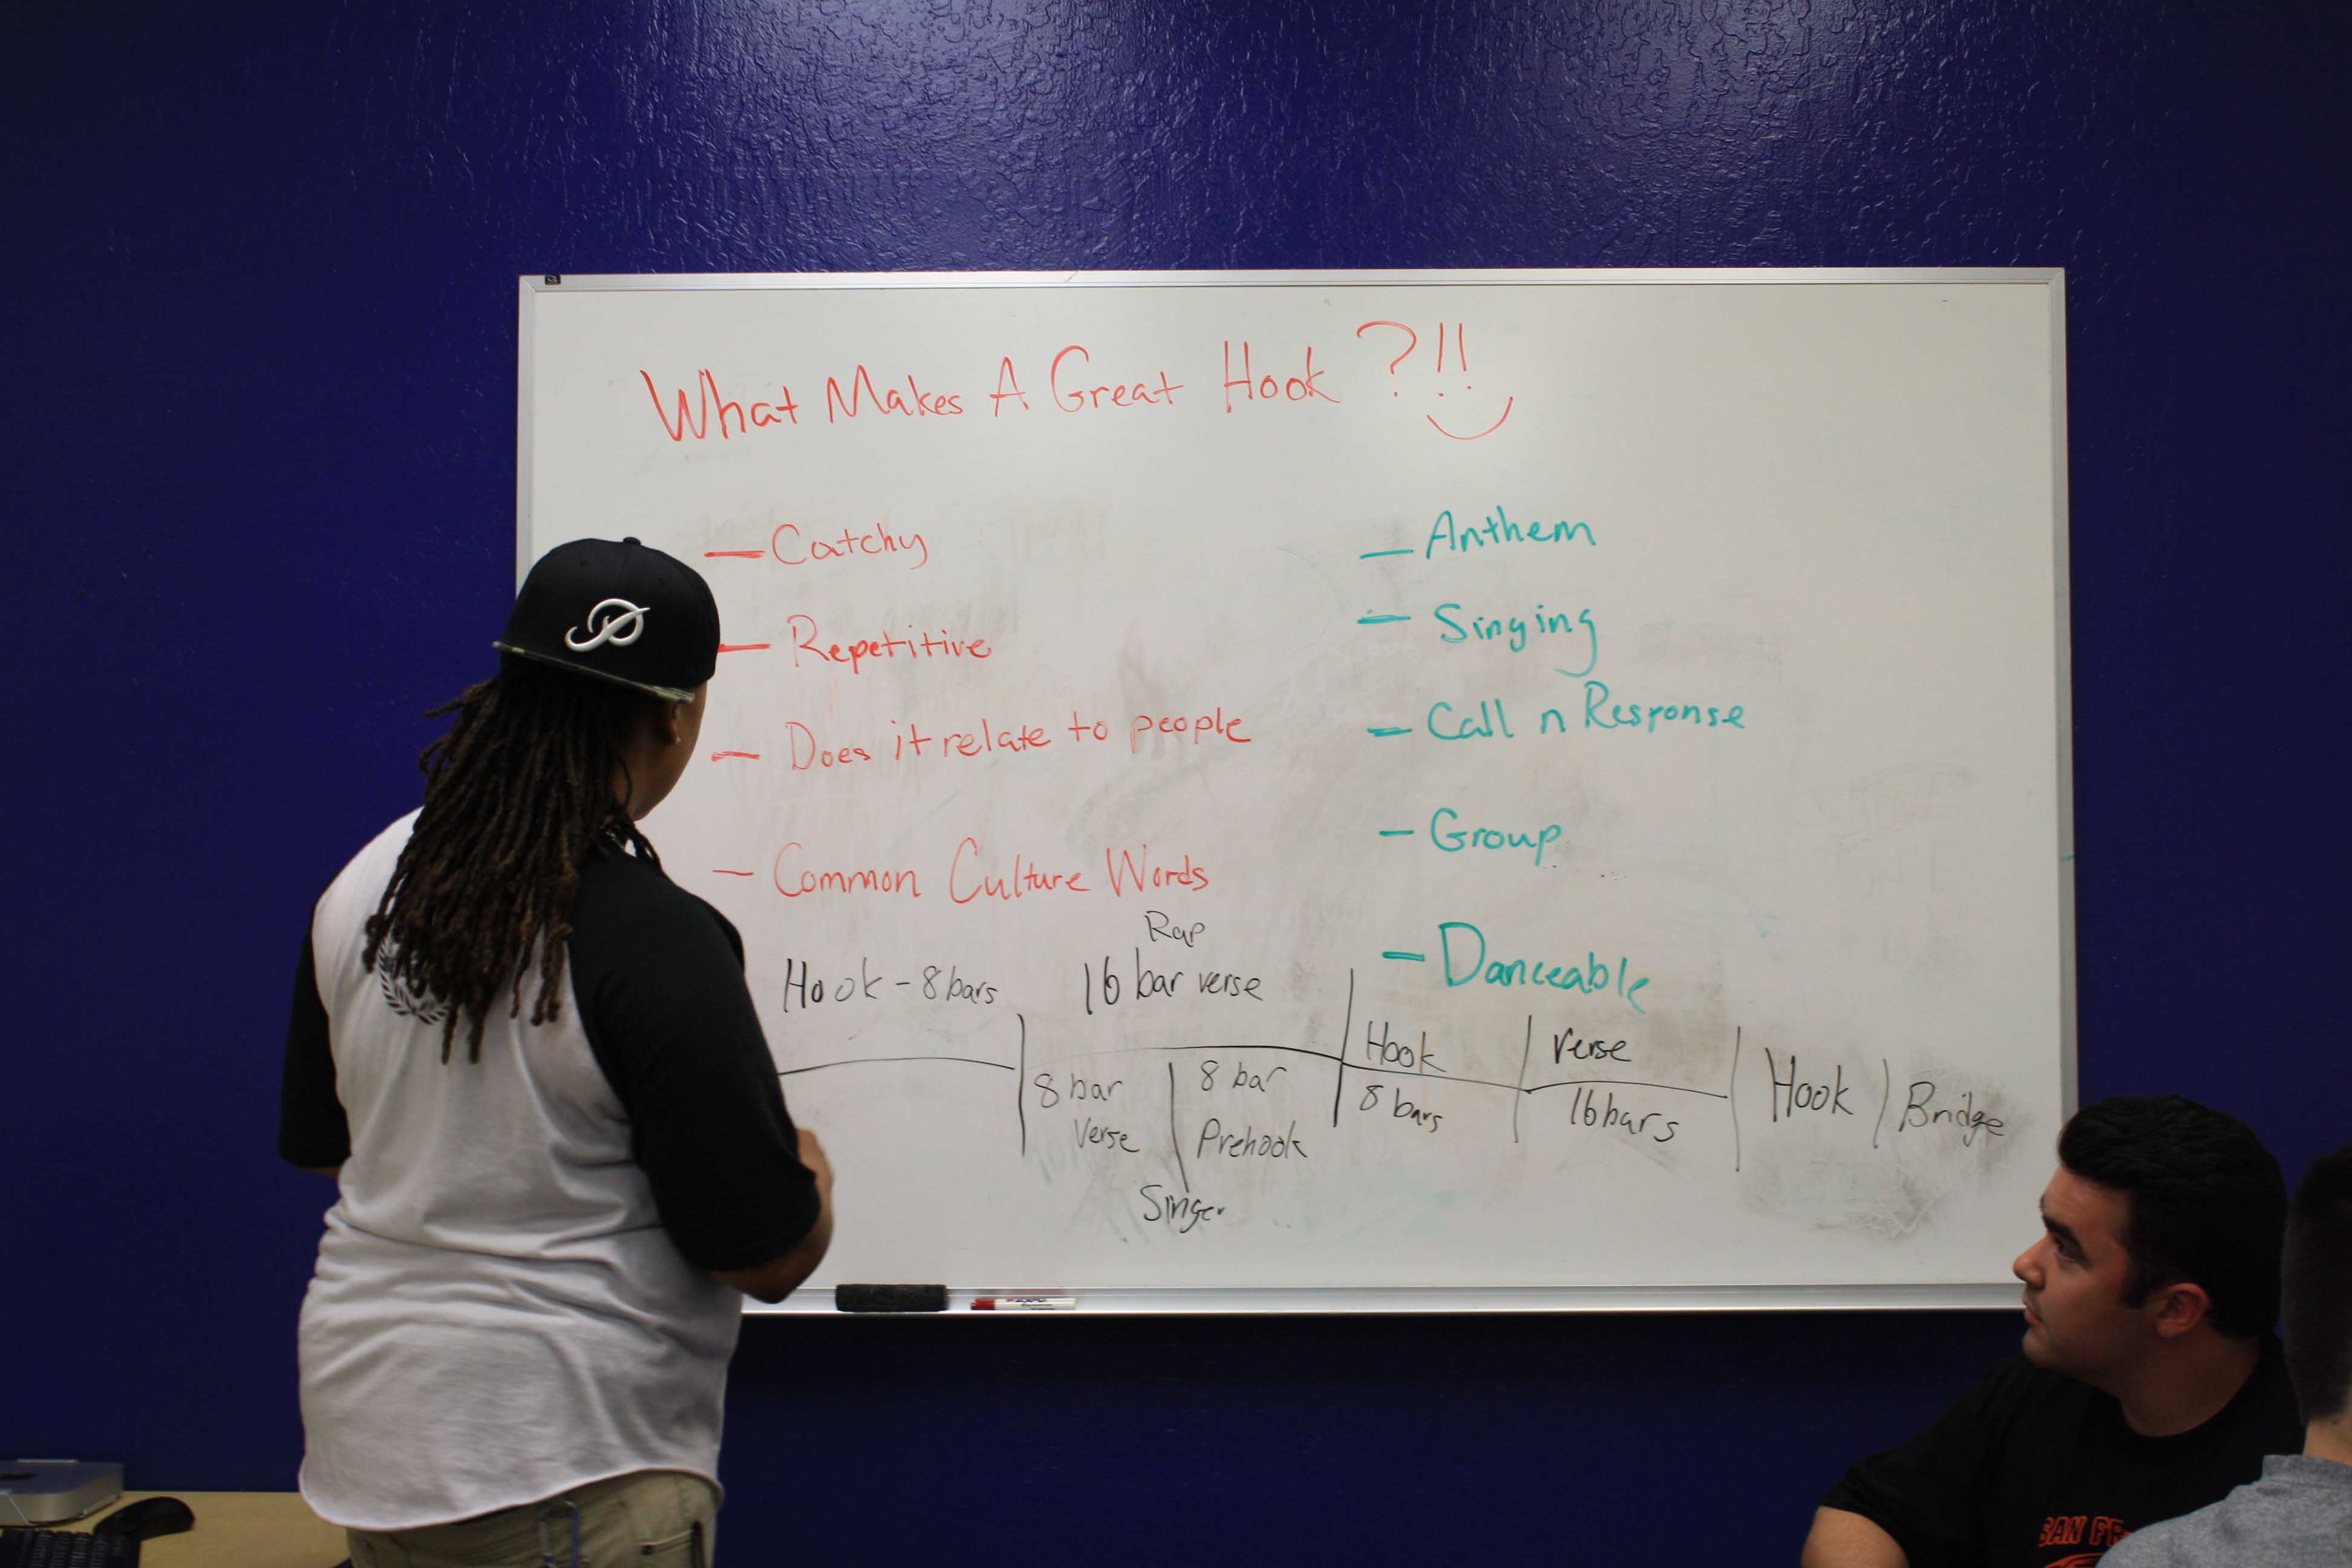 What Makes A Great Hook ?!!
— Catchy
— Repetitive
— Does it relate to people
— Common Culture Words
— Anthem
— Singing
— Call n Response
— Group
— Danceable
Rap
Hook - 8 bars
16 bar verse
8 bar
Verse
8 bar
Prehook
Singer
Hook
8 bars
Verse
16 bars
Hook
Bridge
P
SAN FR